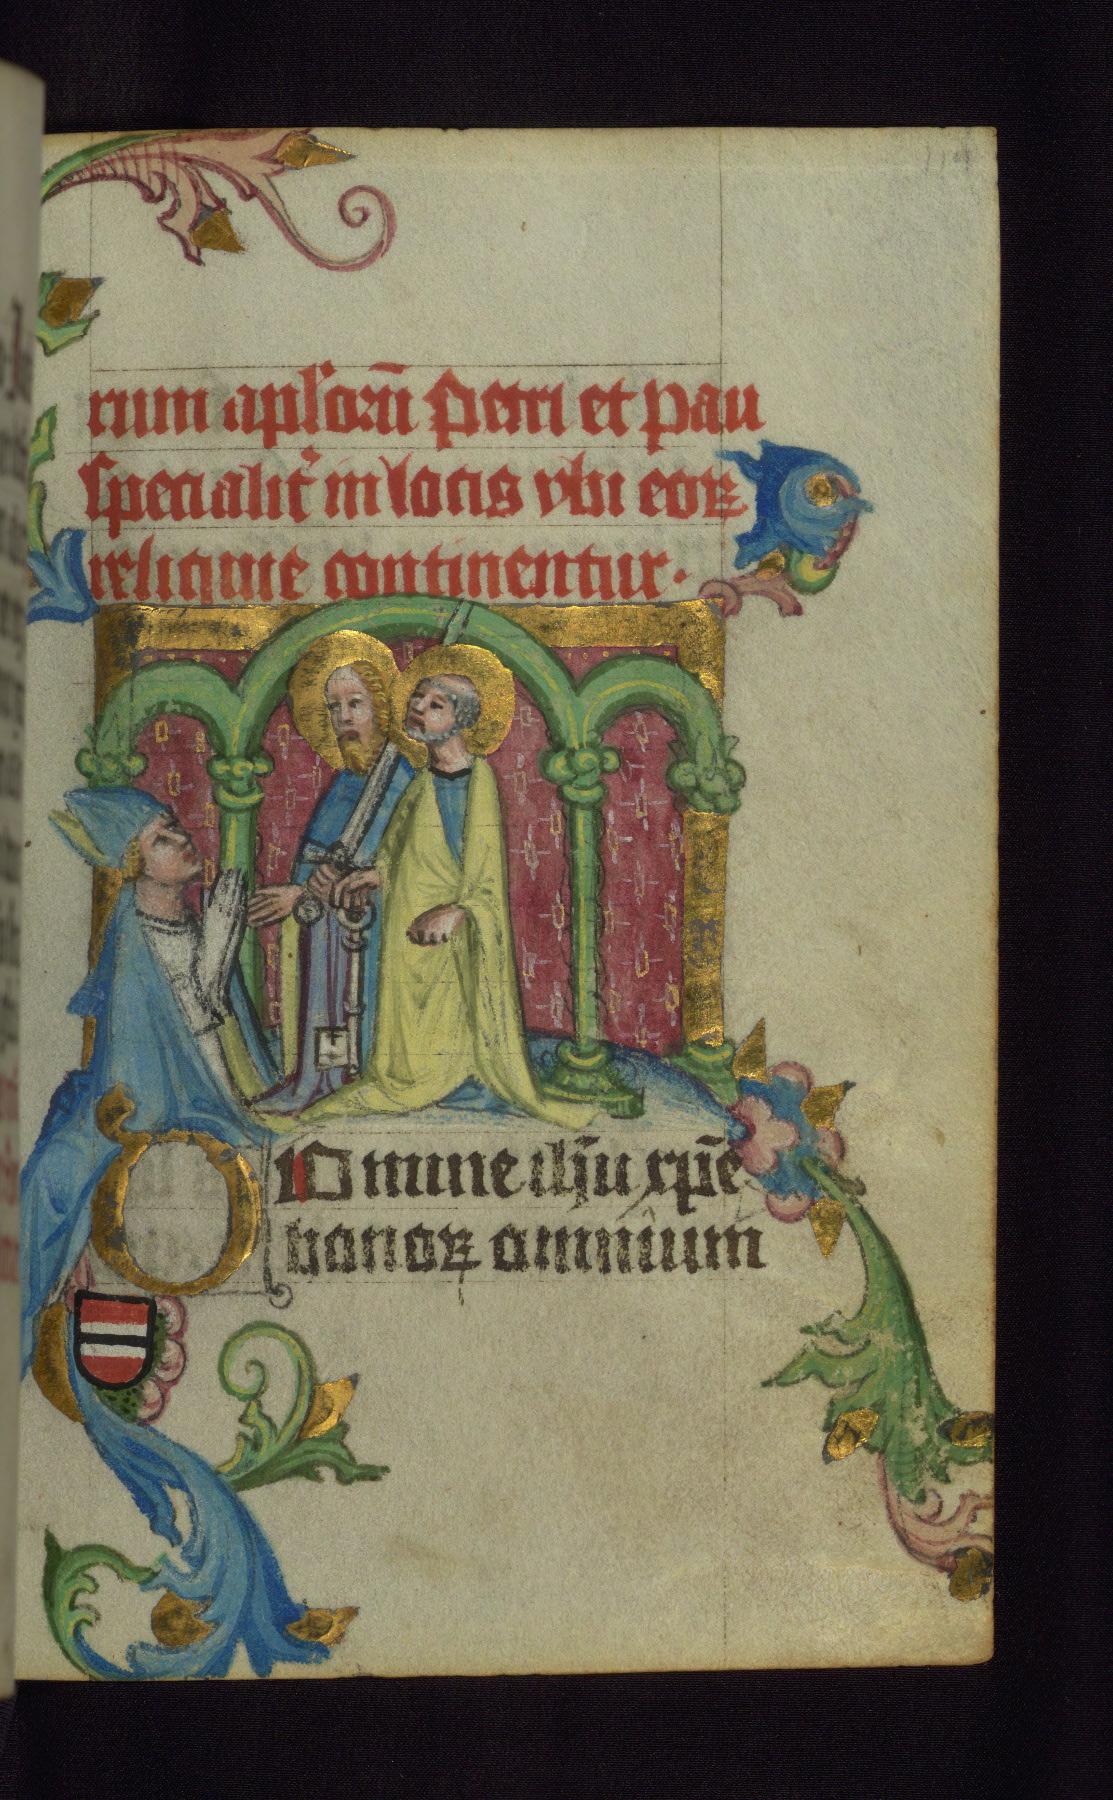 rum apl'oꝝ̄ Petri et pau
specialit̾ in locis vbi eoꝝ
reliquie continentur.
O Domine ih̄u xp̄e
bonoꝝ omnium